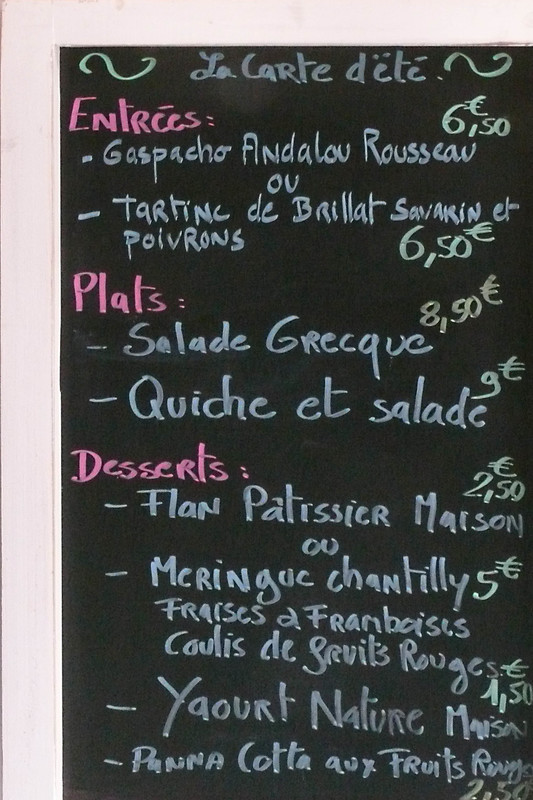 La Carte d'été.
Entrées: 6,50€
- Gaspacho Andalou Rousseau
ou
- Tartine de Brillat Savarin et
poivrons 6,50€
Plats: 8,90€
- Salade Grecque
9€
- Quiche et salade
Desserts: 2,50€
- Flan Pâtissier Maison
ou
- Meringue chantilly 5€
Fraises & Framboises
Coulis de fruits Rouges
1,50€
- Yaourt Nature Maison
- Panna Cotta aux Fruits Rouges
2,50